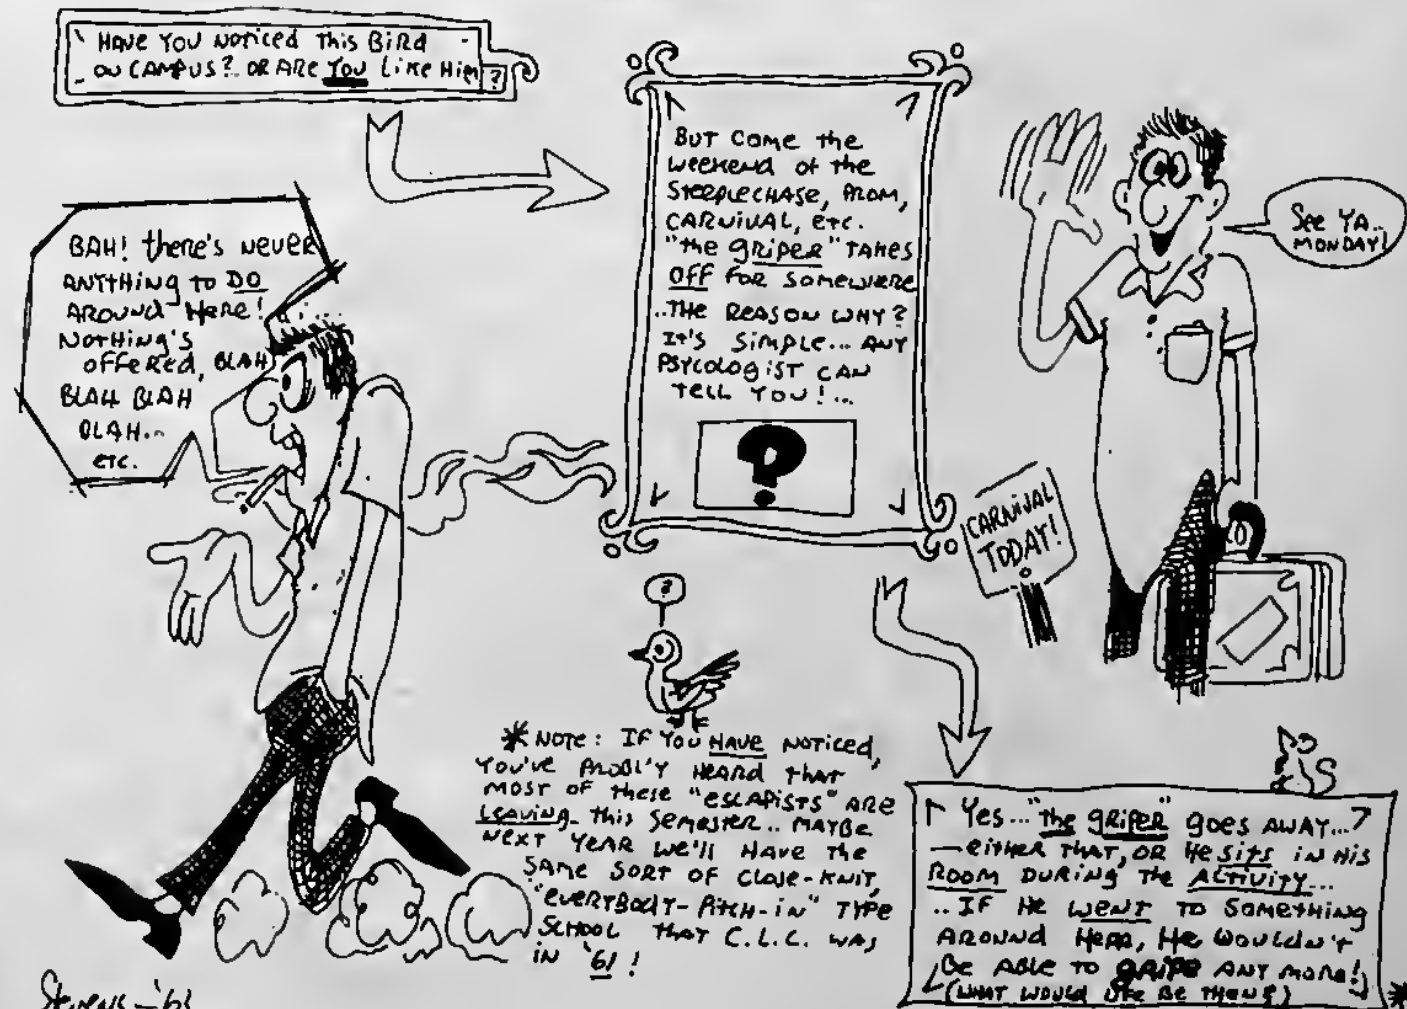 HAVE YOU NOTICED THIS BIRD
ON CAMPUS? OR ARE YOU LIKE HIM ?
BAH! THERE'S NEVER
ANYTHING TO DO
AROUND HERE!
NOTHING'S
OFFERED, BLAH
BLAH BLAH
BLAH...
ETC.
BUT COME THE
WEEKEND OF THE
STEEPLECHASE, PROM,
CARNIVAL, ETC.
"THE GRIPER" TAKES
OFF FOR SOMEWHERE
..THE REASON WHY?
IT'S SIMPLE... ANY
PSYCOLOGIST CAN
TELL YOU!...
?
SEE YA..
MONDAY!
CARNIVAL
TODAY!
?
*NOTE: IF YOU HAVE NOTICED,
YOU'VE PROBL'Y HEARD THAT
MOST OF THESE "ESCAPISTS" ARE
LEAVING THIS SEMESTER.. MAYBE
NEXT YEAR WE'LL HAVE THE
SAME SORT OF CLOSE-KNIT,
"EVERYBODY-PITCH-IN" TYPE
SCHOOL THAT C.L.C. WAS
IN '61!
YES... "THE GRIPER" GOES AWAY...
—EITHER THAT, OR HE SITS IN HIS
ROOM DURING THE ACTIVITY...
..IF HE WENT TO SOMETHING
AROUND HERE, HE WOULDN'T
BE ABLE TO GRIPE ANY MORE!
(WHAT WOULD LIFE BE THEN?) *
Stevens -